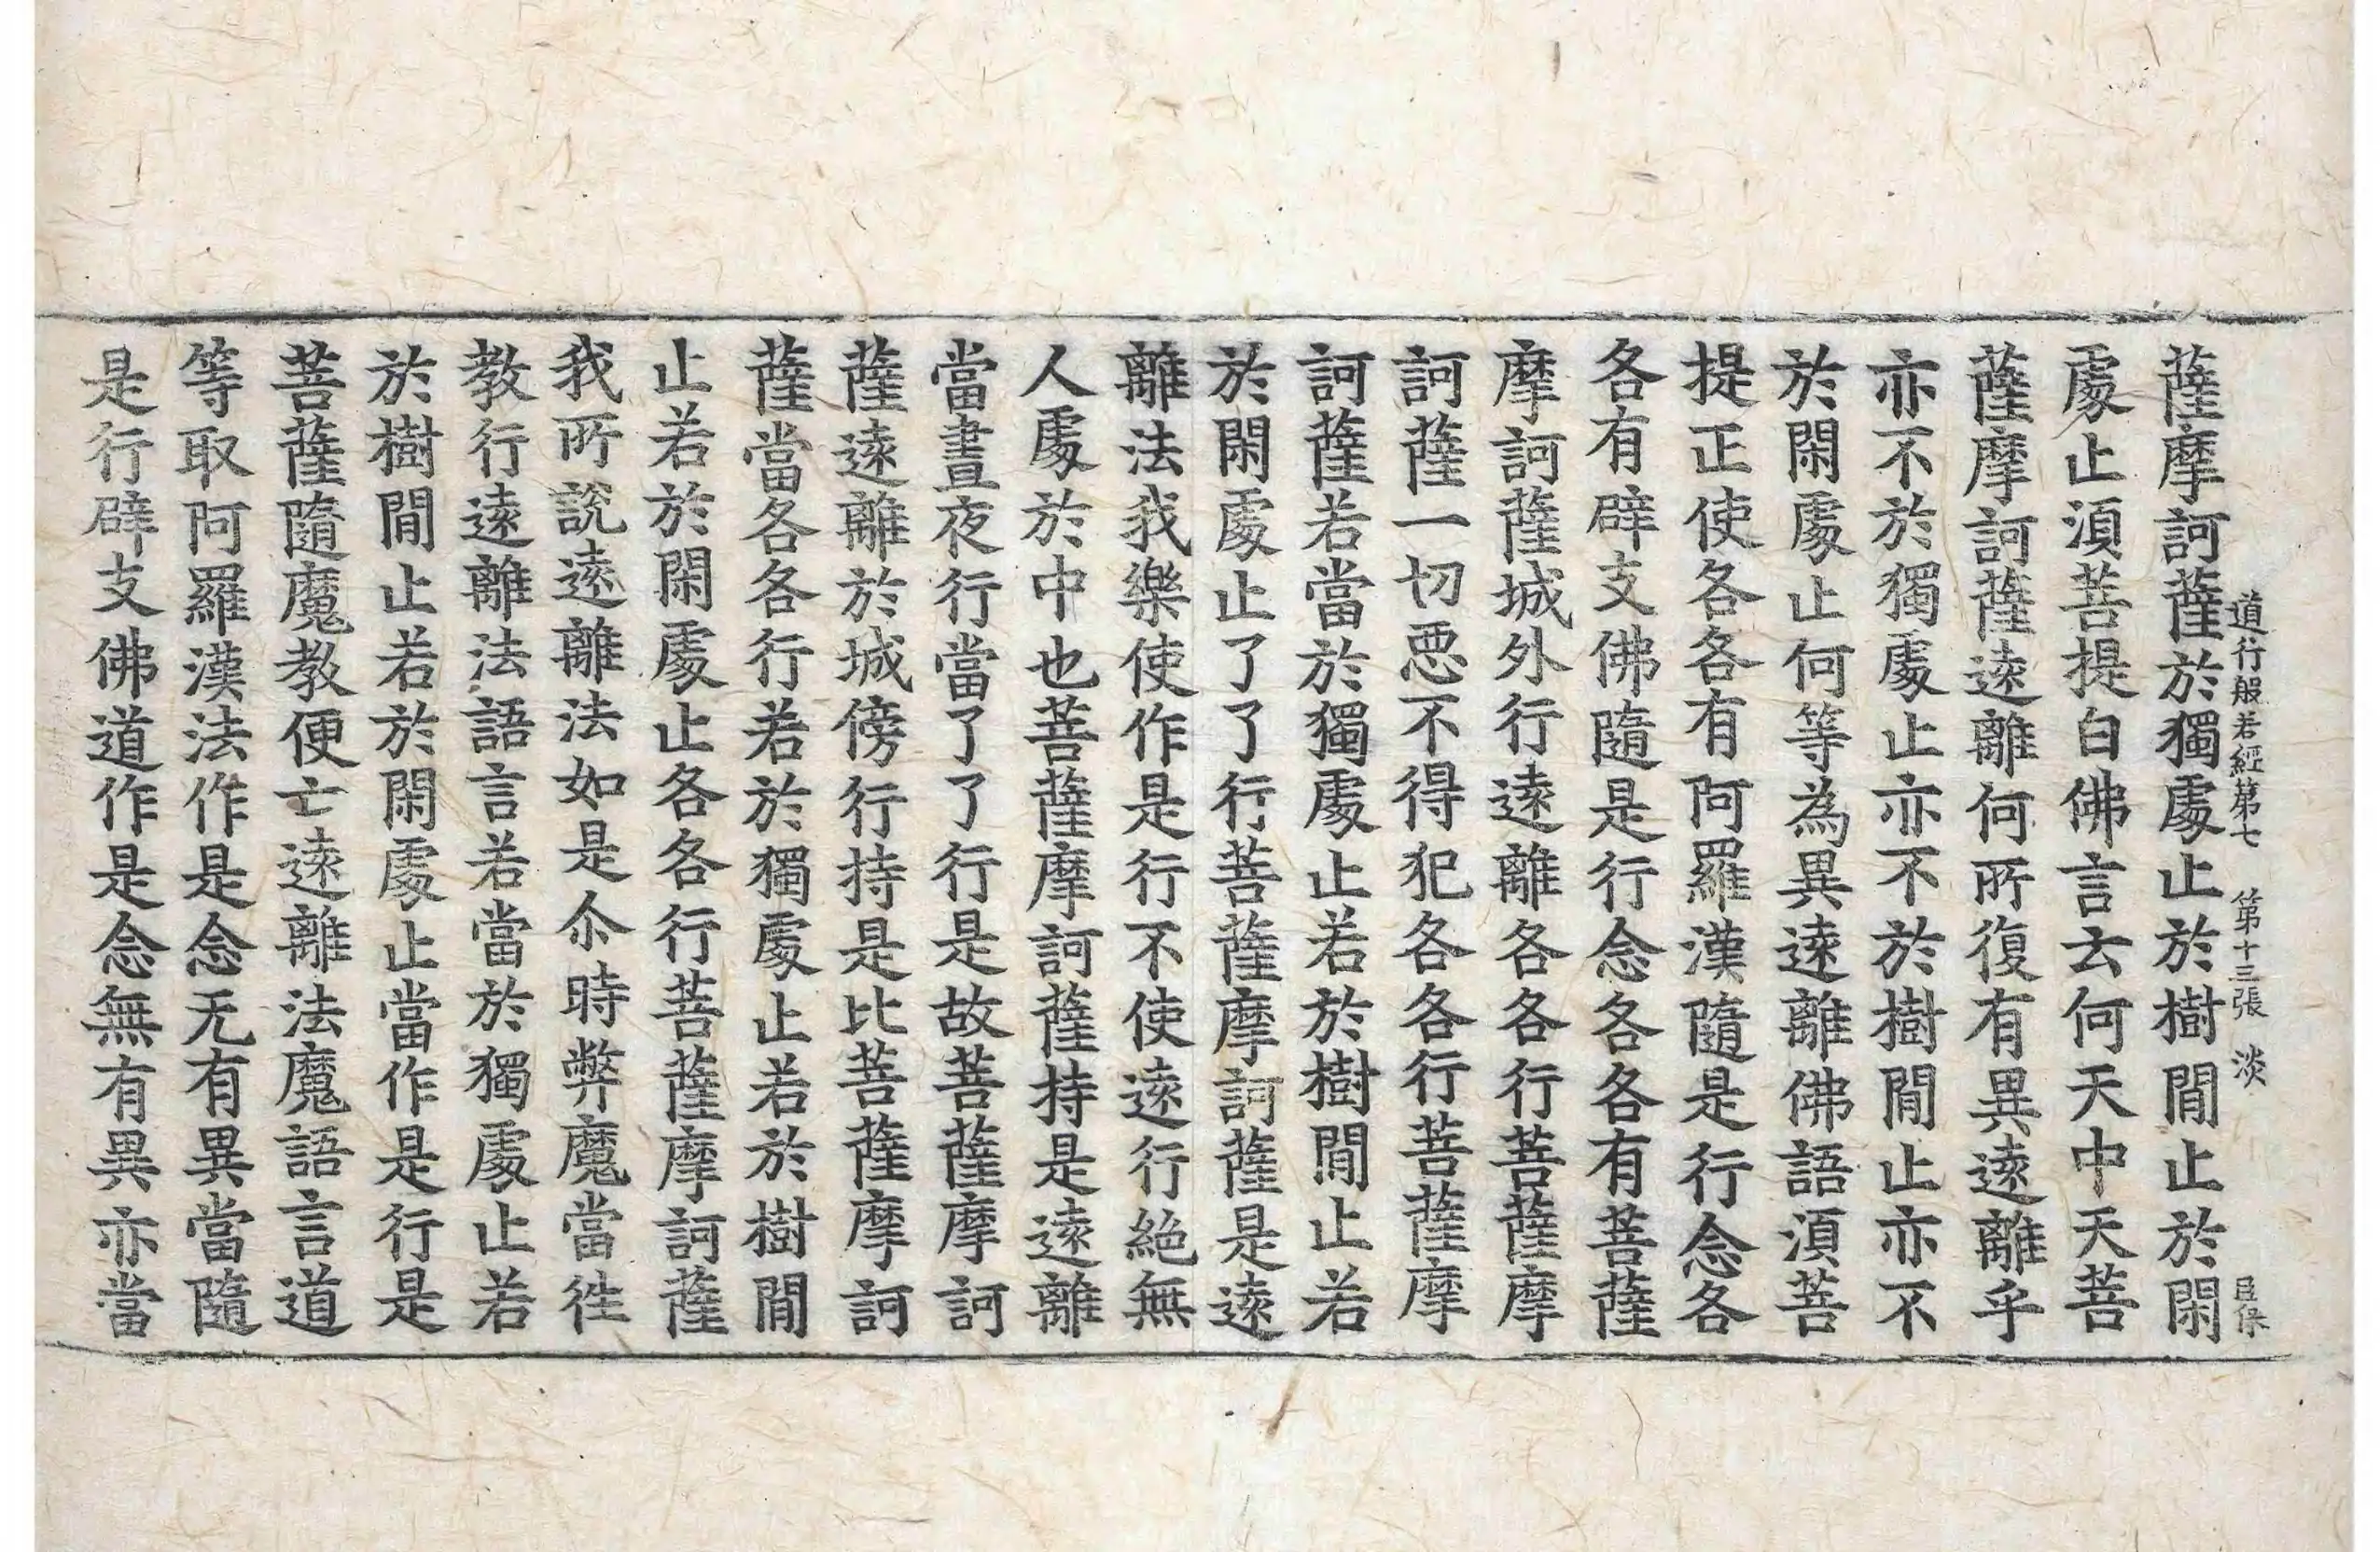 道行般若經第七 第十三張 淡
薩摩訶薩於獨處止於樹間止於閑
處止須菩提白佛言云何天中天菩
薩摩訶薩遠離何所復有異遠離乎
亦不於獨處止亦不於樹間止亦不
於閑處止何等為異遠離佛語須菩
提正使各各有阿羅漢隨是行念各
各有辟支佛隨是行念各各有菩薩
摩訶薩城外行遠離各各行菩薩摩
訶薩一切惡不得犯各各行菩薩摩
訶薩若當於獨處止若於樹間止若
於閑處止了了行菩薩摩訶薩是遠
離法我樂使作是行不使遠行絕無
人處於中也菩薩摩訶薩持是遠離
當晝夜行當了了行是故菩薩摩訶
薩遠離於城傍行持是比菩薩摩訶
薩當各各行若於獨處止若於樹間
止若於閑處止各各行菩薩摩訶薩
我所說遠離法如是尒時弊魔當徃
教行遠離法語言若當於獨處止若
於樹間止若於閑處止當作是行是
菩薩隨魔教便亡遠離法魔語言道
等取阿羅漢法作是念无有異當隨
是行辟支佛道作是念無有異亦當